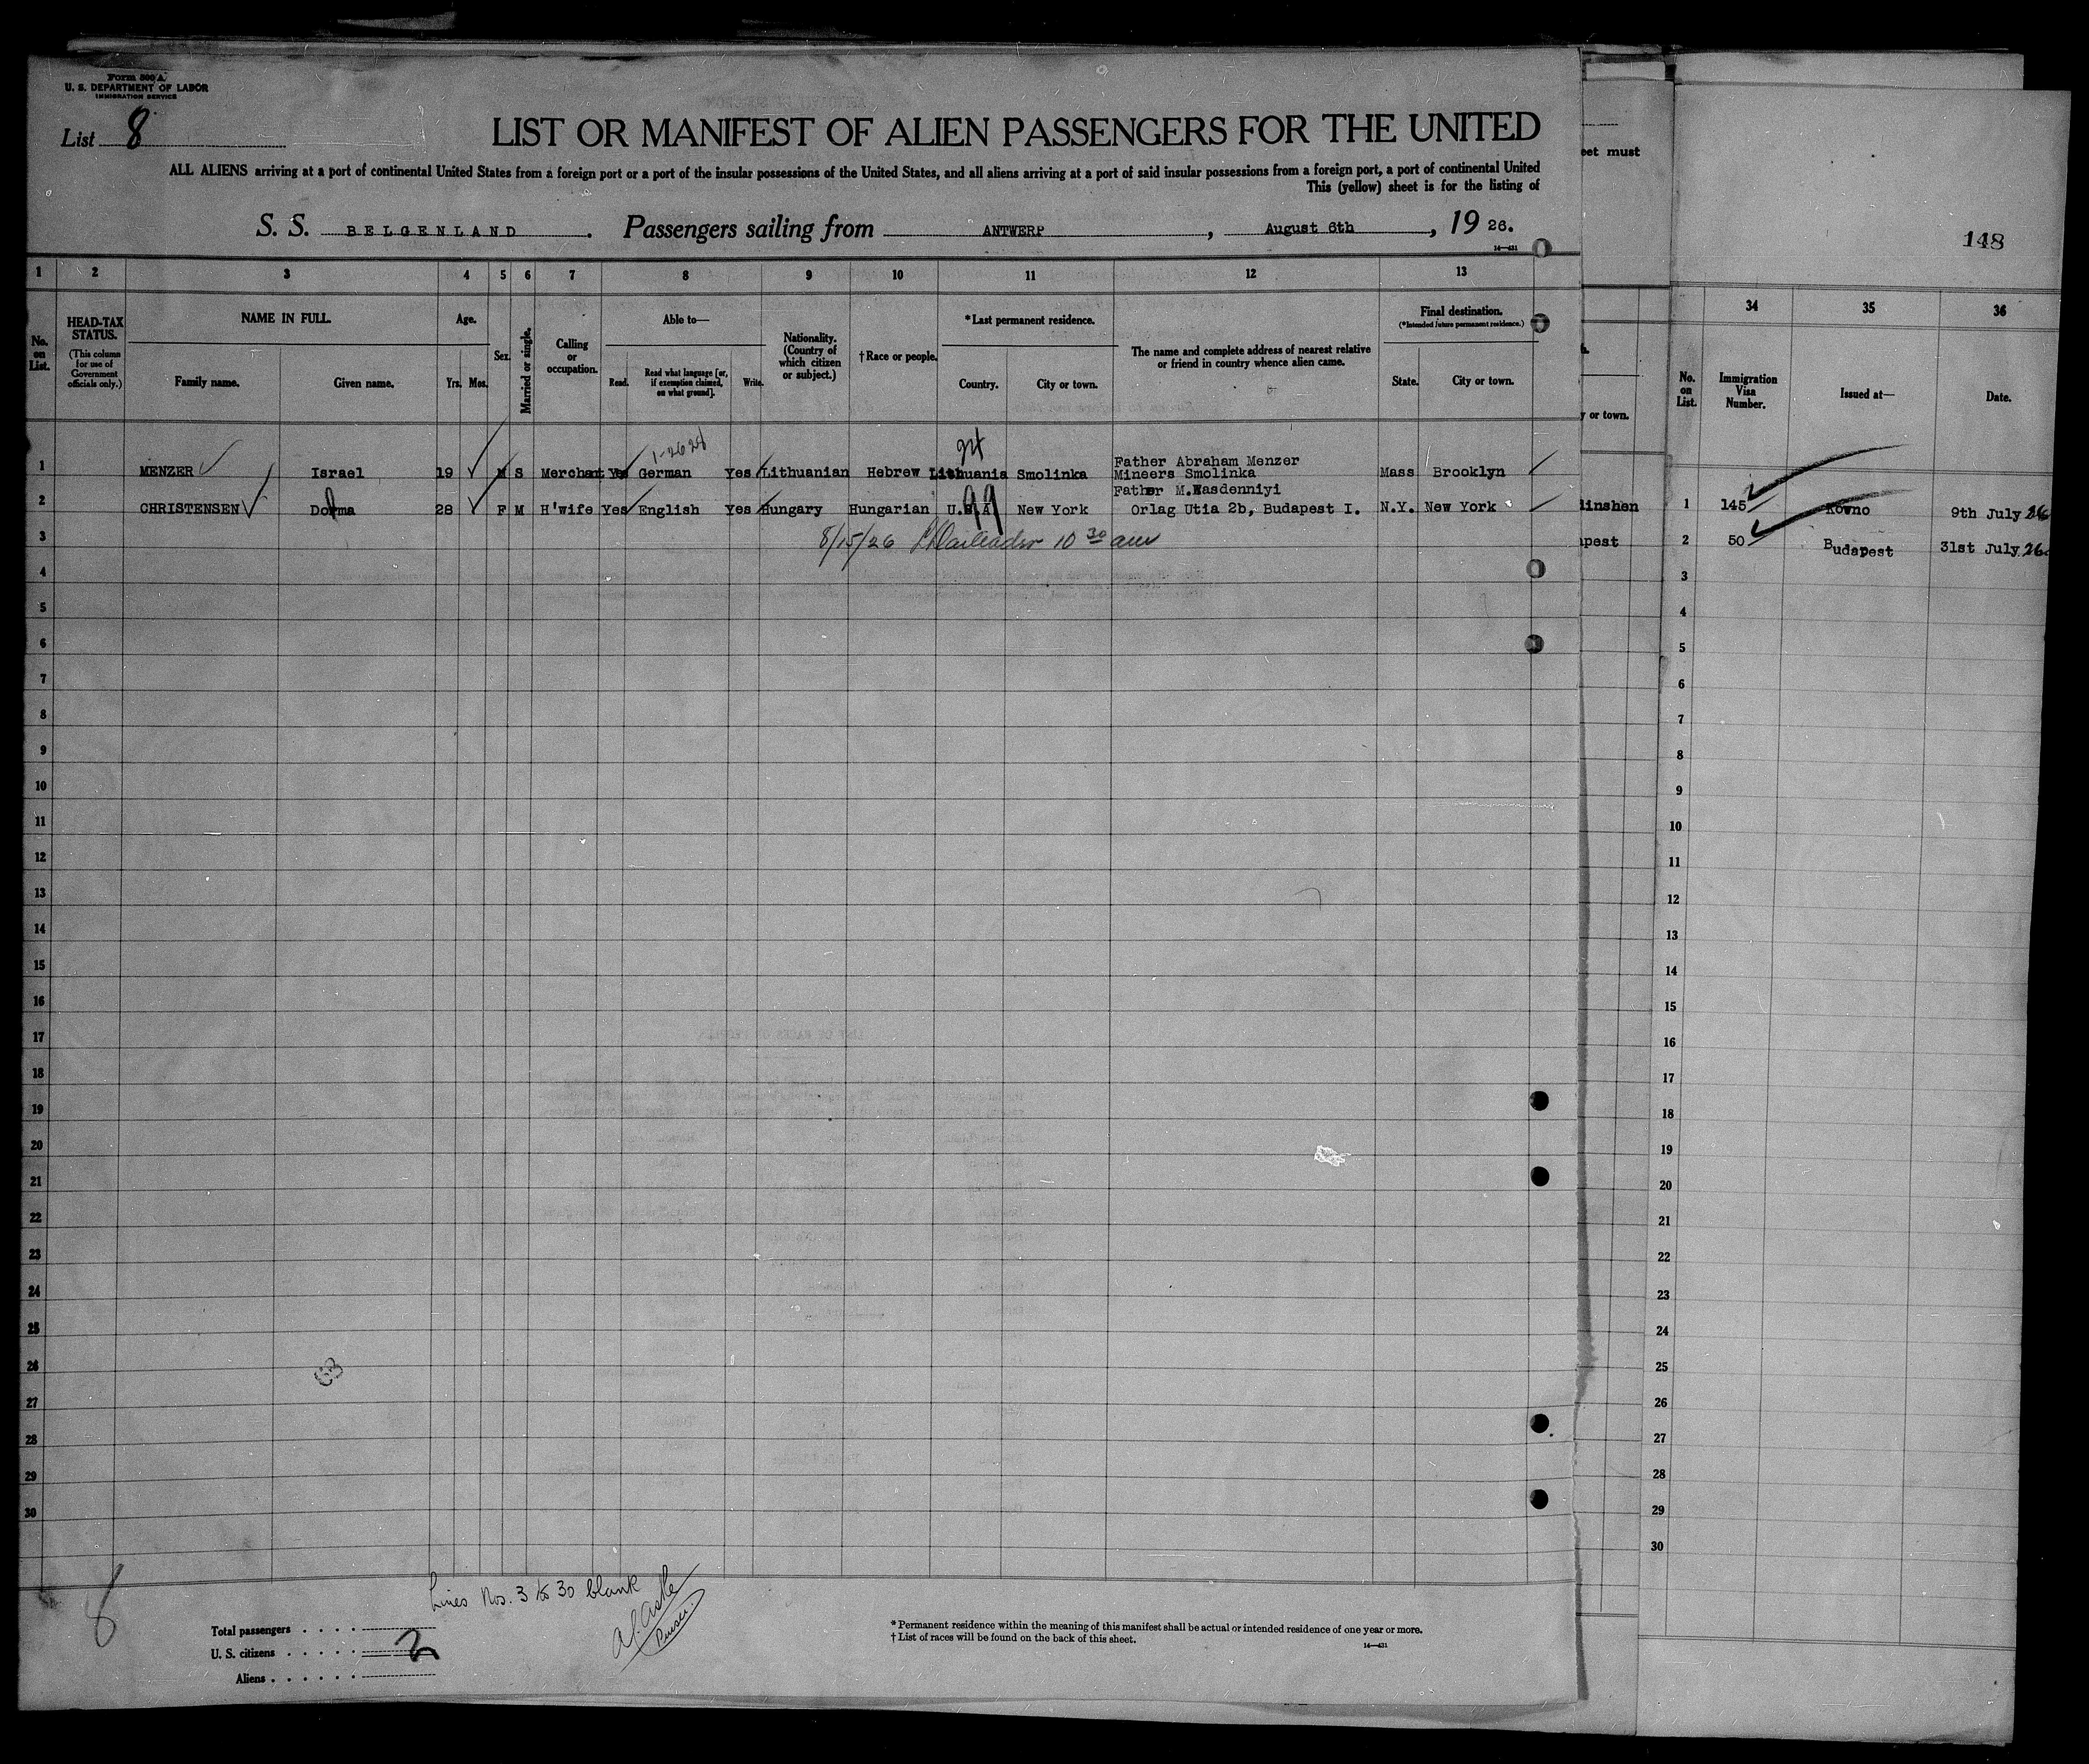 Form 500 A
U. S. DEPARTMENT OF LABOR
IMMIGRATION SERVICE
List 8
LIST OR MANIFEST OF ALIEN PASSENGERS FOR THE UNITED
ALL ALIENS arriving at a port of continental United States from a foreign port or a port of the insular possessions of the United States, and all aliens arriving at a port of said insular possessions from a foreign port, a port of continental United
This (yellow) sheet is for the listing of
eet must
S. S. BELGENLAND. Passengers sailing from ANTWERP, August 6th, 19 26.
14—431
148
1 2 3 4 5 6 7 8 9 10 11 12 13
34 35 36
No. on List.
HEAD-TAX STATUS.
(This column for use of Government officials only.)
NAME IN FULL.
Family name. Given name.
Age.
Yrs. Mos.
Sex.
Married or single.
Calling or occupation.
Able to—
Read. Read what language [or, if exemption claimed, on what ground]. Write.
Nationality. (Country of which citizen or subject.)
†Race or people.
*Last permanent residence.
Country. City or town.
The name and complete address of nearest relative or friend in country whence alien came.
Final destination.
(*Intended future permanent residence.)
State. City or town.
y or town.
No. on List.
Immigration Visa Number.
Issued at—
Date.
1-2628
24
Father Abraham Menzer
1 MENZER Israel 19 M S Merchant Yes German Yes Lithuanian Hebrew Lithuania Smolinka Mineers Smolinka Mass Brooklyn
Father M.Wasdenniyi
2 CHRISTENSEN Dorma 28 F M H'wife Yes English Yes Hungary Hungarian U.S.A. New York Orlag Utia 2b, Budapest I. N.Y. New York
99
linshen
1 145 Kowno 9th July 26
pest
2 50 Budapest 31st July 26.
3 8/15/26 10 30 am
4
5
6
7
8
9
10
11
12
13
14
15
16
17
18
19
20
21
22
23
24
25
26
27
28
29
30
3
4
5
6
7
8
9
10
11
12
13
14
15
16
17
18
19
20
21
22
23
24
25
26
27
28
29
30
Lines Nos. 3 to 30 blank
Purser.
8
Total passengers
U. S. citizens 2
Aliens
* Permanent residence within the meaning of this manifest shall be actual or intended residence of one year or more.
† List of races will be found on the back of this sheet.
14—431